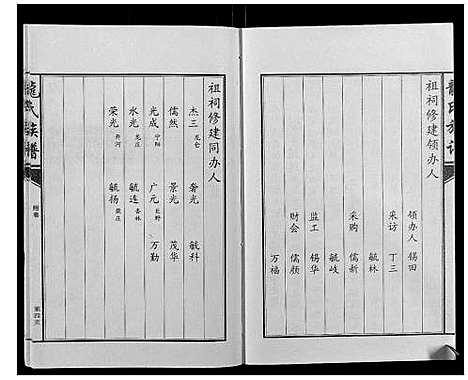 祖祠修建领办人
领办人 锡田
采访 丁三
毓林
采购 儒新
毓岐
监工 锡华
财会 儒颜
万福
祖祠修建同办人
杰三 龙仑 奢光 毓科
儒然 景光 茂华
光成 宁阳 广元 长野 万勤
永光 龙庄 毓连 杏林
荣光 毓杨 戴庄
龙氏族谱
附卷
第四支